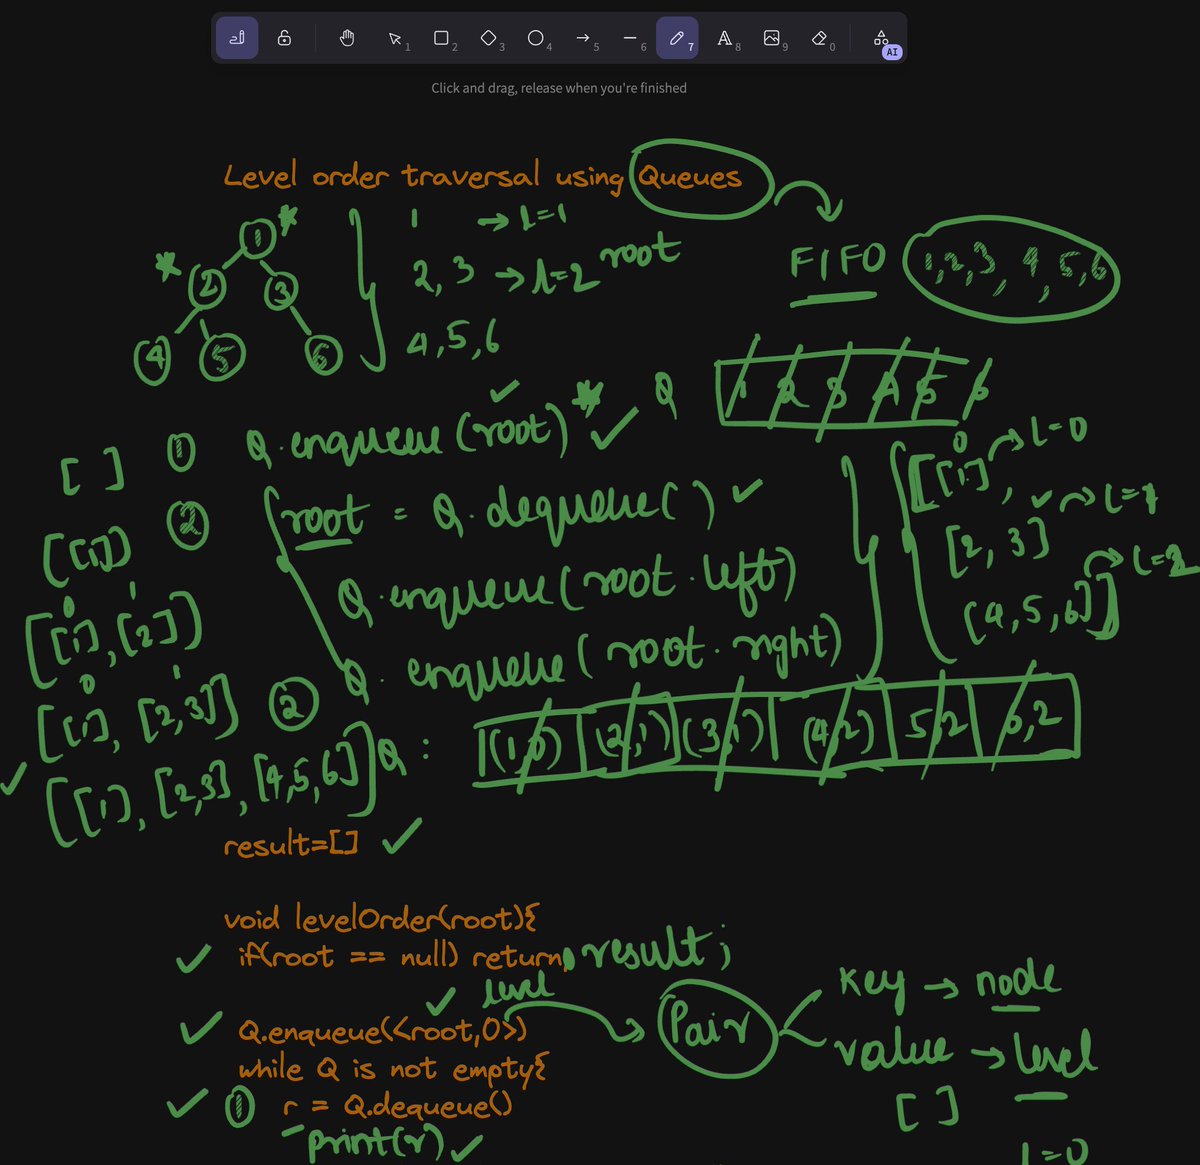 1 2 3 4 5 6 7 8 9 0 AI
Click and drag, release when you're finished
Level order traversal using Queues
1
2 3
4 5 6
1 → L=1
2, 3 → L=2 root
4, 5, 6
FIFO
1,2,3, 4, 5,6
Q 1 2 3 4 5 6
① Q.enqueue(root)
② root = Q.dequeue()
Q.enqueue(root.left)
Q.enqueue(root.right)
[ ]
[[1]]
0 1
[[1],[2]]
0 1
[[1], [2,3]] ②
[[1], [2,3], [4,5,6]]
0
[[1], → L=0
[2, 3] → L=1
[4,5,6]] → L=2
Q: (1,0) (2,1) (3,1) (4,2) 5,2 6,2
result=[]
void levelOrder(root){
if(root == null) return result;
level
Q.enqueue(<root,0>)
while Q is not empty{
① r = Q.dequeue()
print(r)
Pair
key → node
value → level
[ ]
L=0